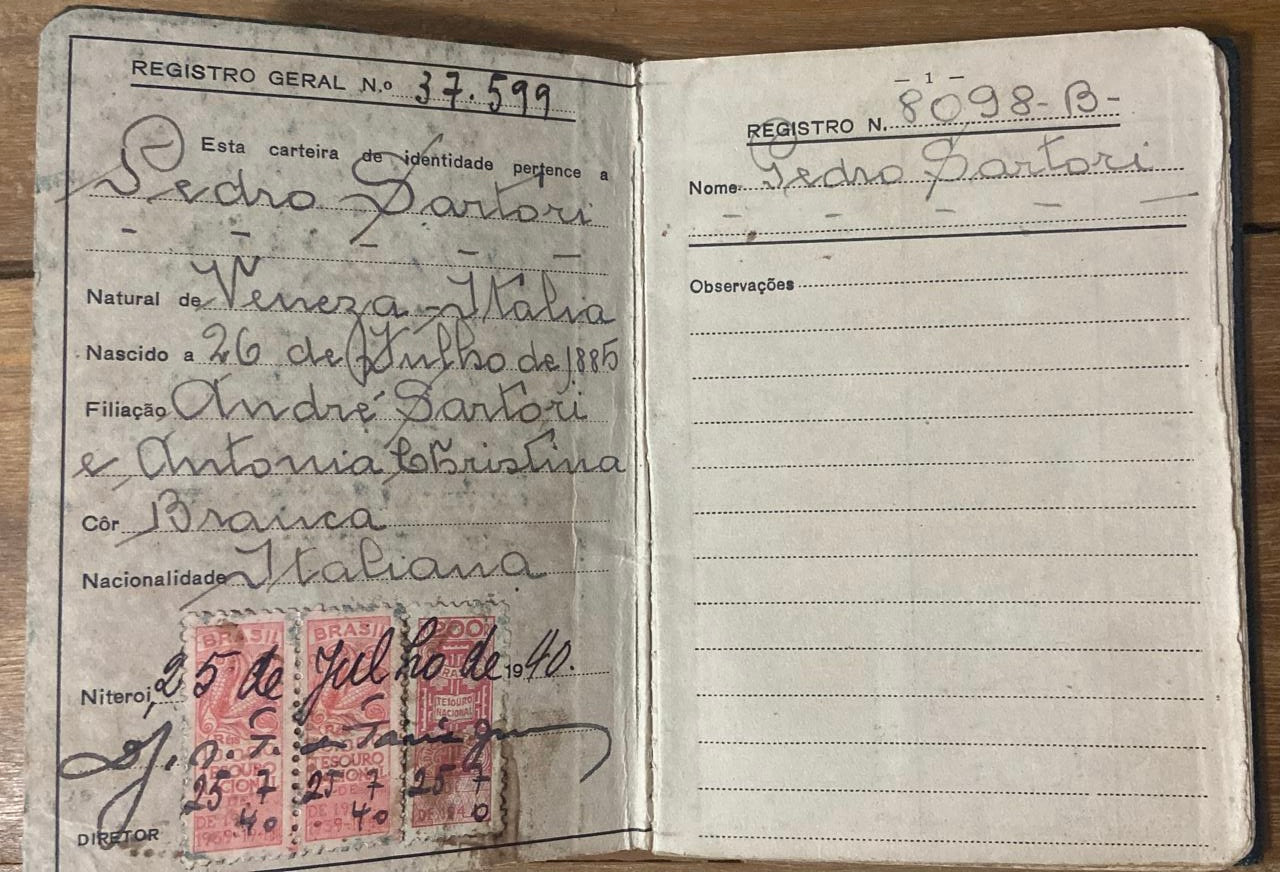 REGISTRO GERAL N.º 37.599
Esta carteira de identidade pertence a
Pedro Sartori
Natural de Veneza - Itália
Nascido a 26 de Julho de 1885
Filiação André Sartori
e Antonia Christina
Côr Branca
Nacionalidade Italiana
BRASIL BRASIL 200
Niteroi, 25 de Julho de 1940.
TESOURO NACIONAL
TESOURO
25 7 25 7 25 7
40 40 0
DIRETOR
- 1 -
REGISTRO N. 8098-B-
Nome Pedro Sartori
Observações